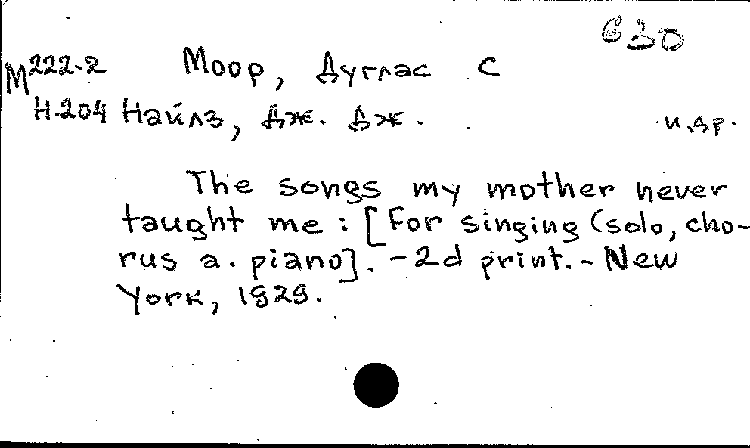 630
М222-2 Моор, Дуглас С
Н-204 Найлз, Дж. Дж. и др.
The songs my mother never
taught me : [For singing (solo, cho-
rus a. piano]. - 2d print. - New
York, 1929.